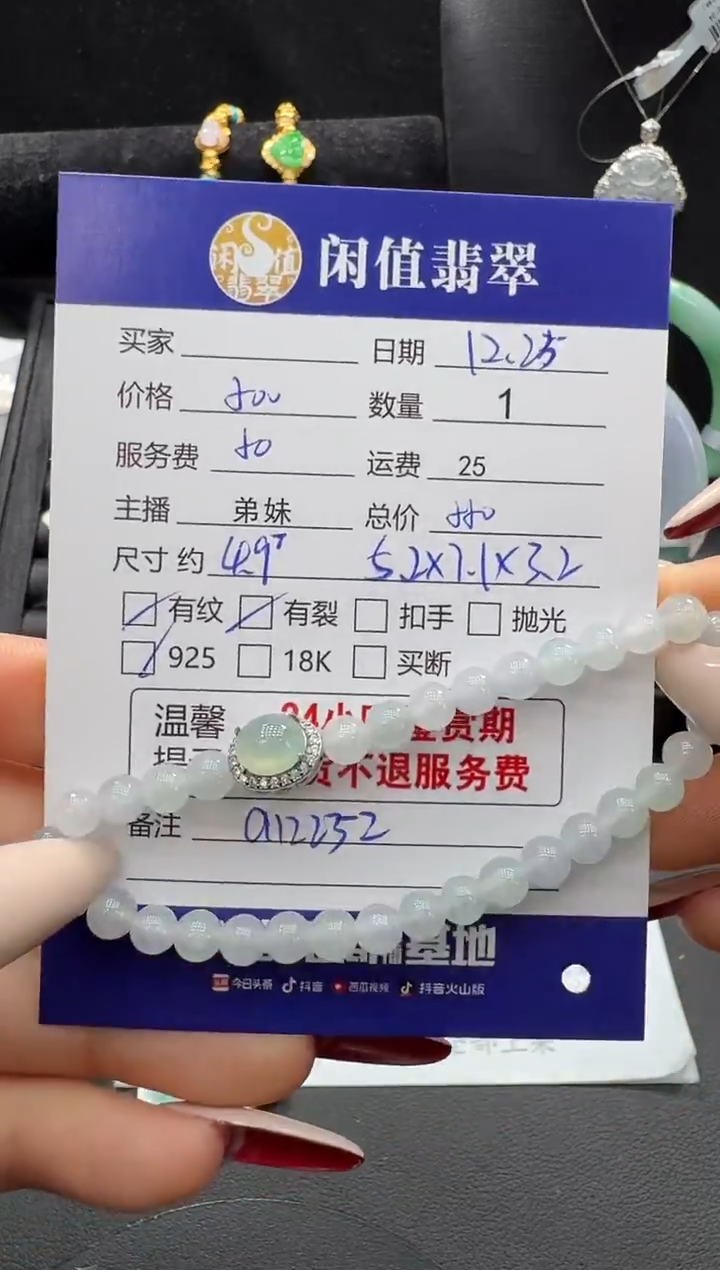 闲值翡翠
闲值翡翠
买家 日期 12.25
价格 500 数量 1
服务费 50 运费 25
主播 弟妹 总价 550
尺寸 约 4.9 5.2X7.1X3.2
有纹 有裂 扣手 抛光
925 18K 买断
温馨 24小 鉴赏期
提 货不退服务费
备注 a12252
基地
今日头条 抖音 西瓜视频 抖音火山版